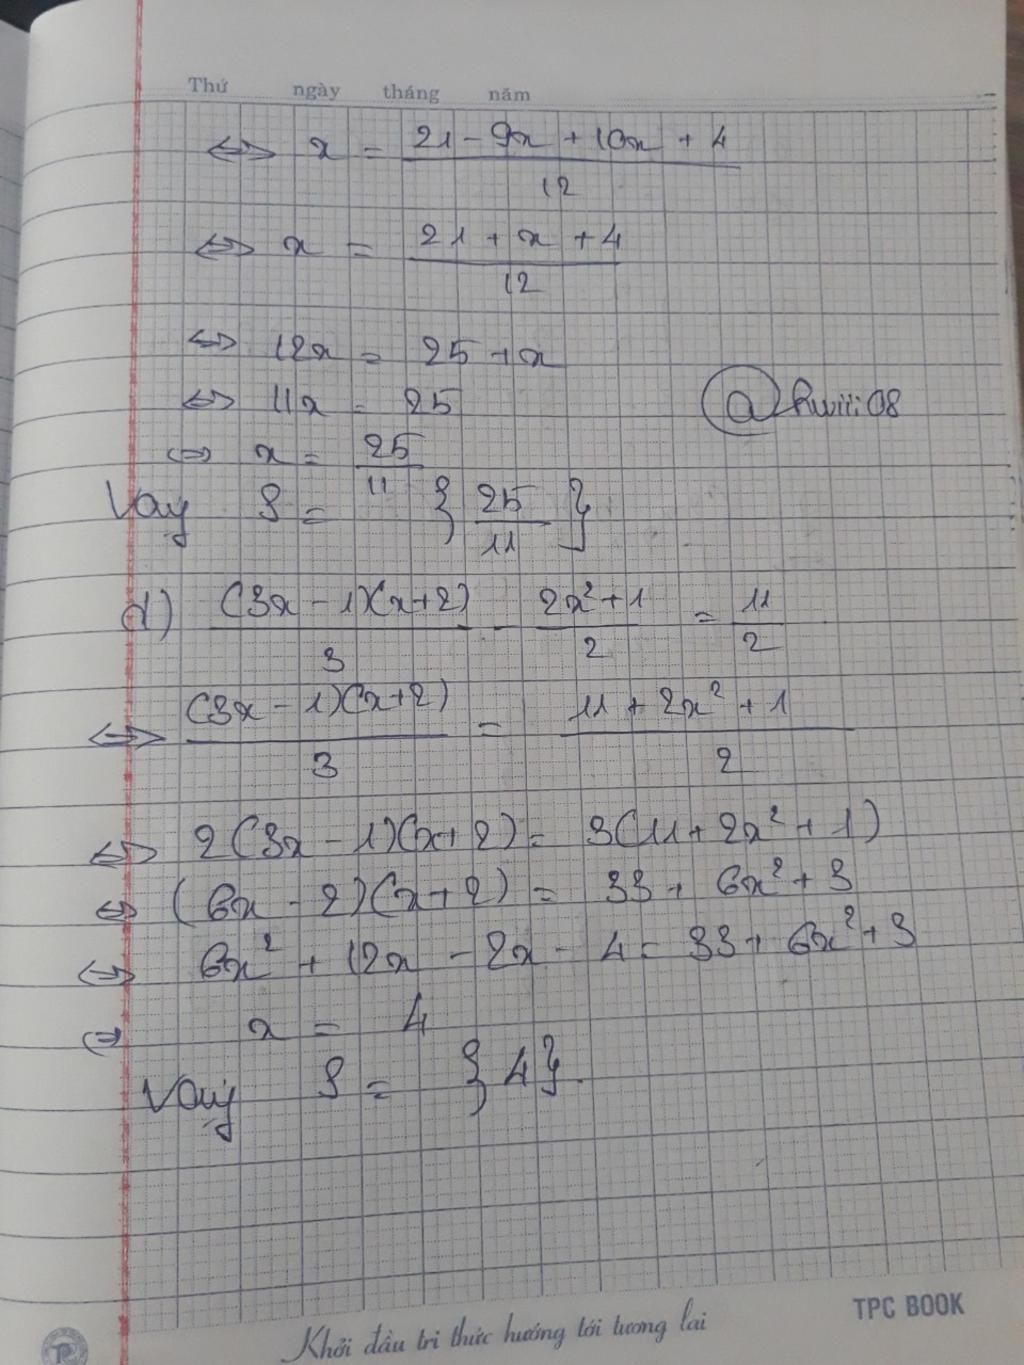 Thứ ngày tháng năm
<=> x = (21 - 9x + 10x + 4)/12
<=> x = (21 + x + 4)/12
<=> 12x = 25 + x
<=> 11x = 25
<=> x = 25/11
Vậy S = { 25/11 }
d) (3x - 1)(x+2)/3 - (2x² + 1)/2 = 11/2
<=> (3x - 1)(x+2)/3 = (11 + 2x² + 1)/2
<=> 2(3x - 1)(x+2) = 3(11 + 2x² + 1)
<=> (6x - 2)(x+2) = 33 + 6x² + 3
<=> 6x² + 12x - 2x - 4 = 33 + 6x² + 3
<=> x = 4
Vậy S = {4}.
Khởi đầu tri thức hướng tới tương lai
TPC BOOK